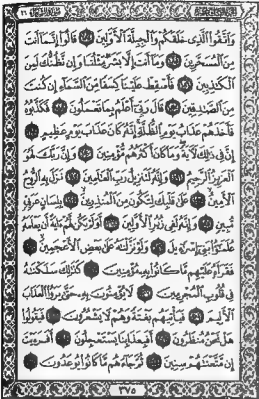 وَاتَّقُوا الَّذِي خَلَقَكُمْ وَالْجِبِلَّةَ الْأَوَّلِينَ ١٨٤ قَالُوا إِنَّمَا أَنتَ
مِنَ الْمُسَحَّرِينَ ١٨٥ وَمَا أَنتَ إِلَّا بَشَرٌ مِّثْلُنَا وَإِن نَّظُنُّكَ لَمِنَ
الْكَٰذِبِينَ ١٨٦ فَأَسْقِطْ عَلَيْنَا كِسَفًا مِّنَ السَّمَاءِ إِن كُنتَ
مِنَ الصَّٰدِقِينَ ١٨٧ قَالَ رَبِّي أَعْلَمُ بِمَا تَعْمَلُونَ ١٨٨ فَكَذَّبُوهُ
فَأَخَذَهُمْ عَذَابُ يَوْمِ الظُّلَّةِ إِنَّهُ كَانَ عَذَابَ يَوْمٍ عَظِيمٍ ١٨٩
إِنَّ فِي ذَٰلِكَ لَآيَةً وَمَا كَانَ أَكْثَرُهُم مُّؤْمِنِينَ ١٩٠ وَإِنَّ رَبَّكَ لَهُوَ
الْعَزِيزُ الرَّحِيمُ ١٩١ وَإِنَّهُ لَتَنزِيلُ رَبِّ الْعَٰلَمِينَ ١٩٢ نَزَلَ بِهِ الرُّوحُ
الْأَمِينُ ١٩٣ عَلَىٰ قَلْبِكَ لِتَكُونَ مِنَ الْمُنذِرِينَ ١٩٤ بِلِسَانٍ عَرَبِيٍّ
مُّبِينٍ ١٩٥ وَإِنَّهُ لَفِي زُبُرِ الْأَوَّلِينَ ١٩٦ أَوَلَمْ يَكُن لَّهُمْ آيَةً أَن يَعْلَمَهُ
عُلَمَٰؤُا بَنِي إِسْرَٰءِيلَ ١٩٧ وَلَوْ نَزَّلْنَٰهُ عَلَىٰ بَعْضِ الْأَعْجَمِينَ ١٩٨
فَقَرَأَهُ عَلَيْهِم مَّا كَانُوا بِهِ مُؤْمِنِينَ ١٩٩ كَذَٰلِكَ سَلَكْنَٰهُ
فِي قُلُوبِ الْمُجْرِمِينَ ٢٠٠ لَا يُؤْمِنُونَ بِهِ حَتَّىٰ يَرَوُا الْعَذَابَ
الْأَلِيمَ ٢٠١ فَيَأْتِيَهُم بَغْتَةً وَهُمْ لَا يَشْعُرُونَ ٢٠٢ فَيَقُولُوا
هَلْ نَحْنُ مُنظَرُونَ ٢٠٣ أَفَبِعَذَابِنَا يَسْتَعْجِلُونَ ٢٠٤ أَفَرَءَيْتَ
إِن مَّتَّعْنَٰهُمْ سِنِينَ ٢٠٥ ثُمَّ جَاءَهُم مَّا كَانُوا يُوعَدُونَ ٢٠٦
٣٧٥